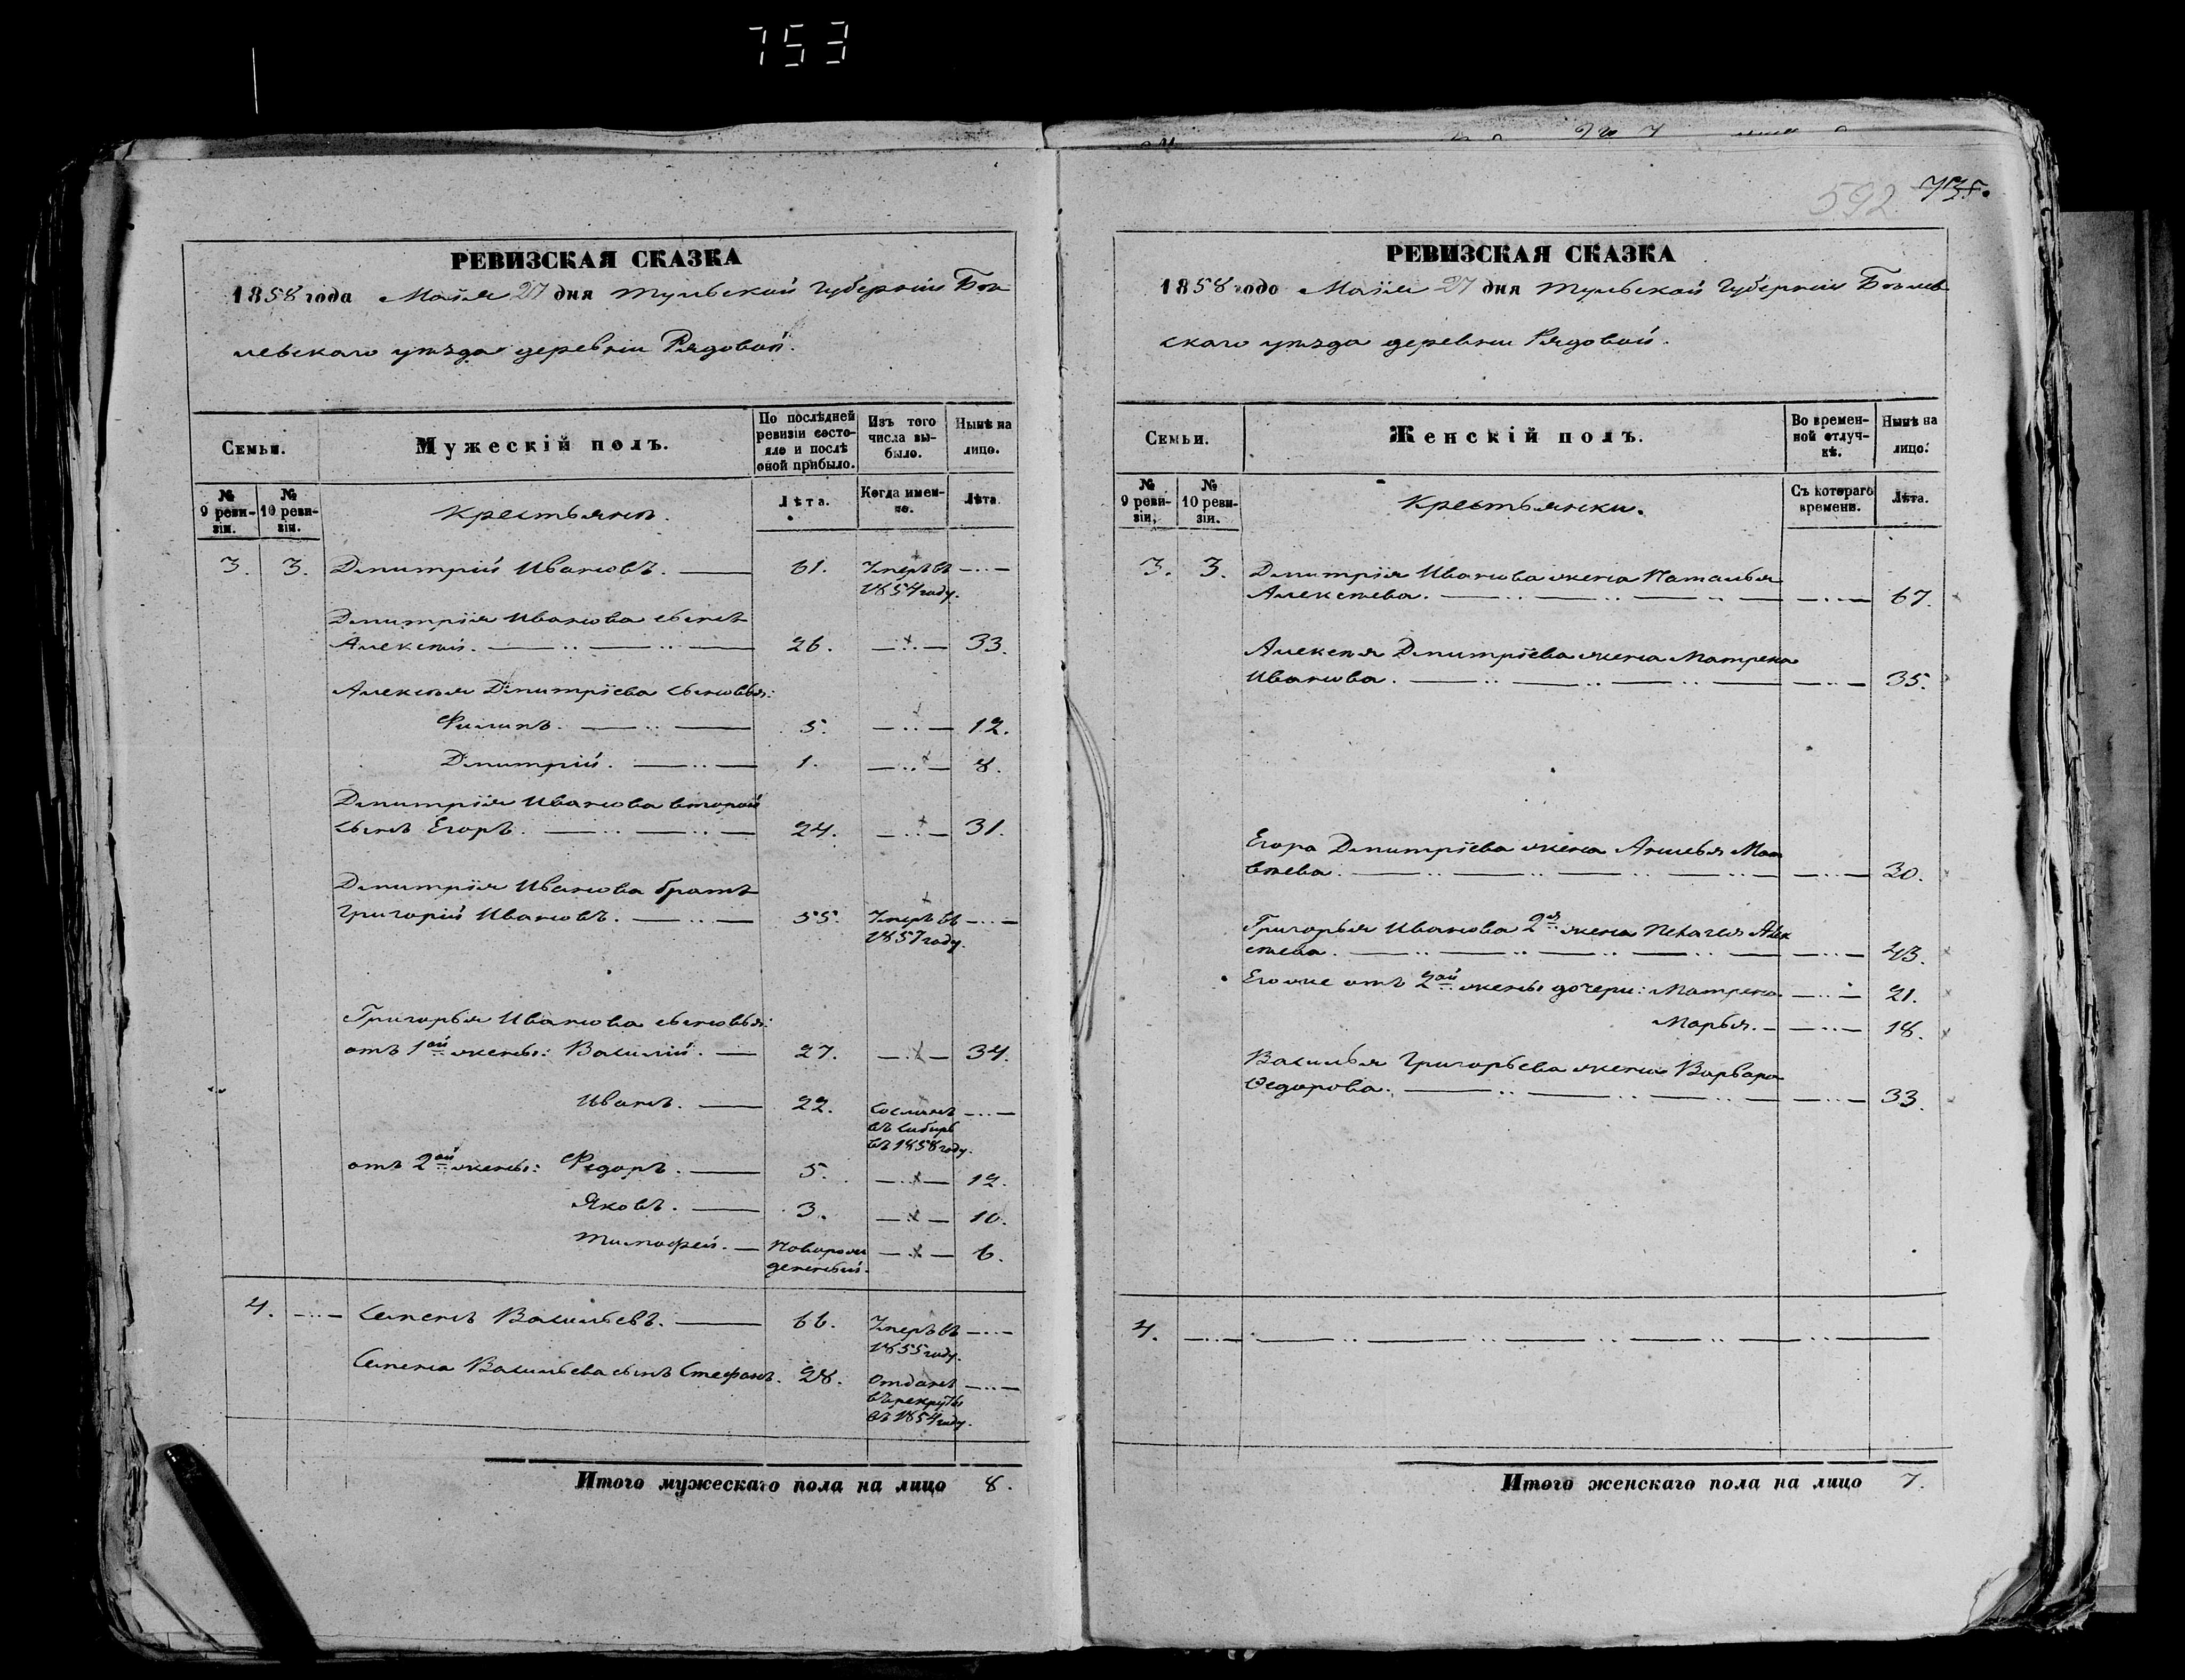 753
592 735.
РЕВИЗСКАЯ СКАЗКА
1858 года Маія 27 дня Тульской Губерніи Бѣ-
левскаго уѣзда деревни Рядовой.
Семьи.
Мужескій полъ.
По послѣдней ревизіи состо-яло и послѣ оной прибыло.
Изъ того числа вы-было.
Нынѣ на лицо.
№ 9 реви-зіи.
№ 10 реви-зіи.
Крестьянъ.
Лѣта.
Когда имен-но.
Лѣта.
3. 3. Дмитрій Ивановъ. 61. Умеръ въ
1854 году.
Дмитрія Иванова сынъ
Алексѣй. 26. 33.
Алексѣя Дмитріева сыновья:
Филипъ. 5. 12.
Дмитрій. 1. 8.
Дмитрія Иванова второй
сынъ Егоръ. 24. 31.
Дмитрія Иванова братъ
Григорій Ивановъ. 55. Умеръ въ
1857 году.
Григорья Иванова сыновья:
отъ 1ой жены: Василій. 27. 34.
Иванъ. 22. Сосланъ
въ Сибирь
въ 1858 году.
отъ 2ой жены: Федоръ. 5. 12.
Яковъ. 3. 10.
Тимофей. Новорож
денный. 6.
4. Семенъ Васильевъ. 66. Умеръ въ
1855 году.
Семена Васильева сынъ Стефанъ. 28. Отданъ
въ рекруты
въ 1854 году.
Итого мужескаго пола на лицо 8.
РЕВИЗСКАЯ СКАЗКА
1858 года Маія 27 дня Тульской Губерніи Бѣлев-
скаго уѣзда деревни Рядовой.
Семьи.
Женскій полъ.
Во времен-ной отлуч-кѣ.
Нынѣ на лицо.
№ 9 реви-зіи.
№ 10 реви-зіи.
Крестьянки.
Съ котораго времени.
Лѣта.
3. 3. Дмитрія Иванова жена Наталья
Алексѣева. 67.
Алексѣя Дмитріева жена Матрена
Иванова. 35.
Егора Дмитріева жена Анисья Мат
вѣева. 30.
Григорья Иванова 2я жена Пелагея Алек
сѣева. 43.
Его же отъ 2ой жены дочери: Матрена 21.
Марья. 18.
Василья Григорьева жена Варвара
Федорова. 33.
4.
Итого женскаго пола на лицо 7.